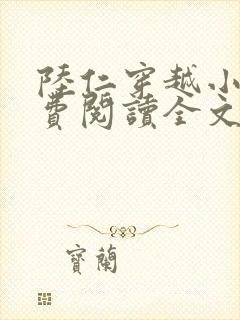 陸仁穿越小
費閱讀全文
寶蘭